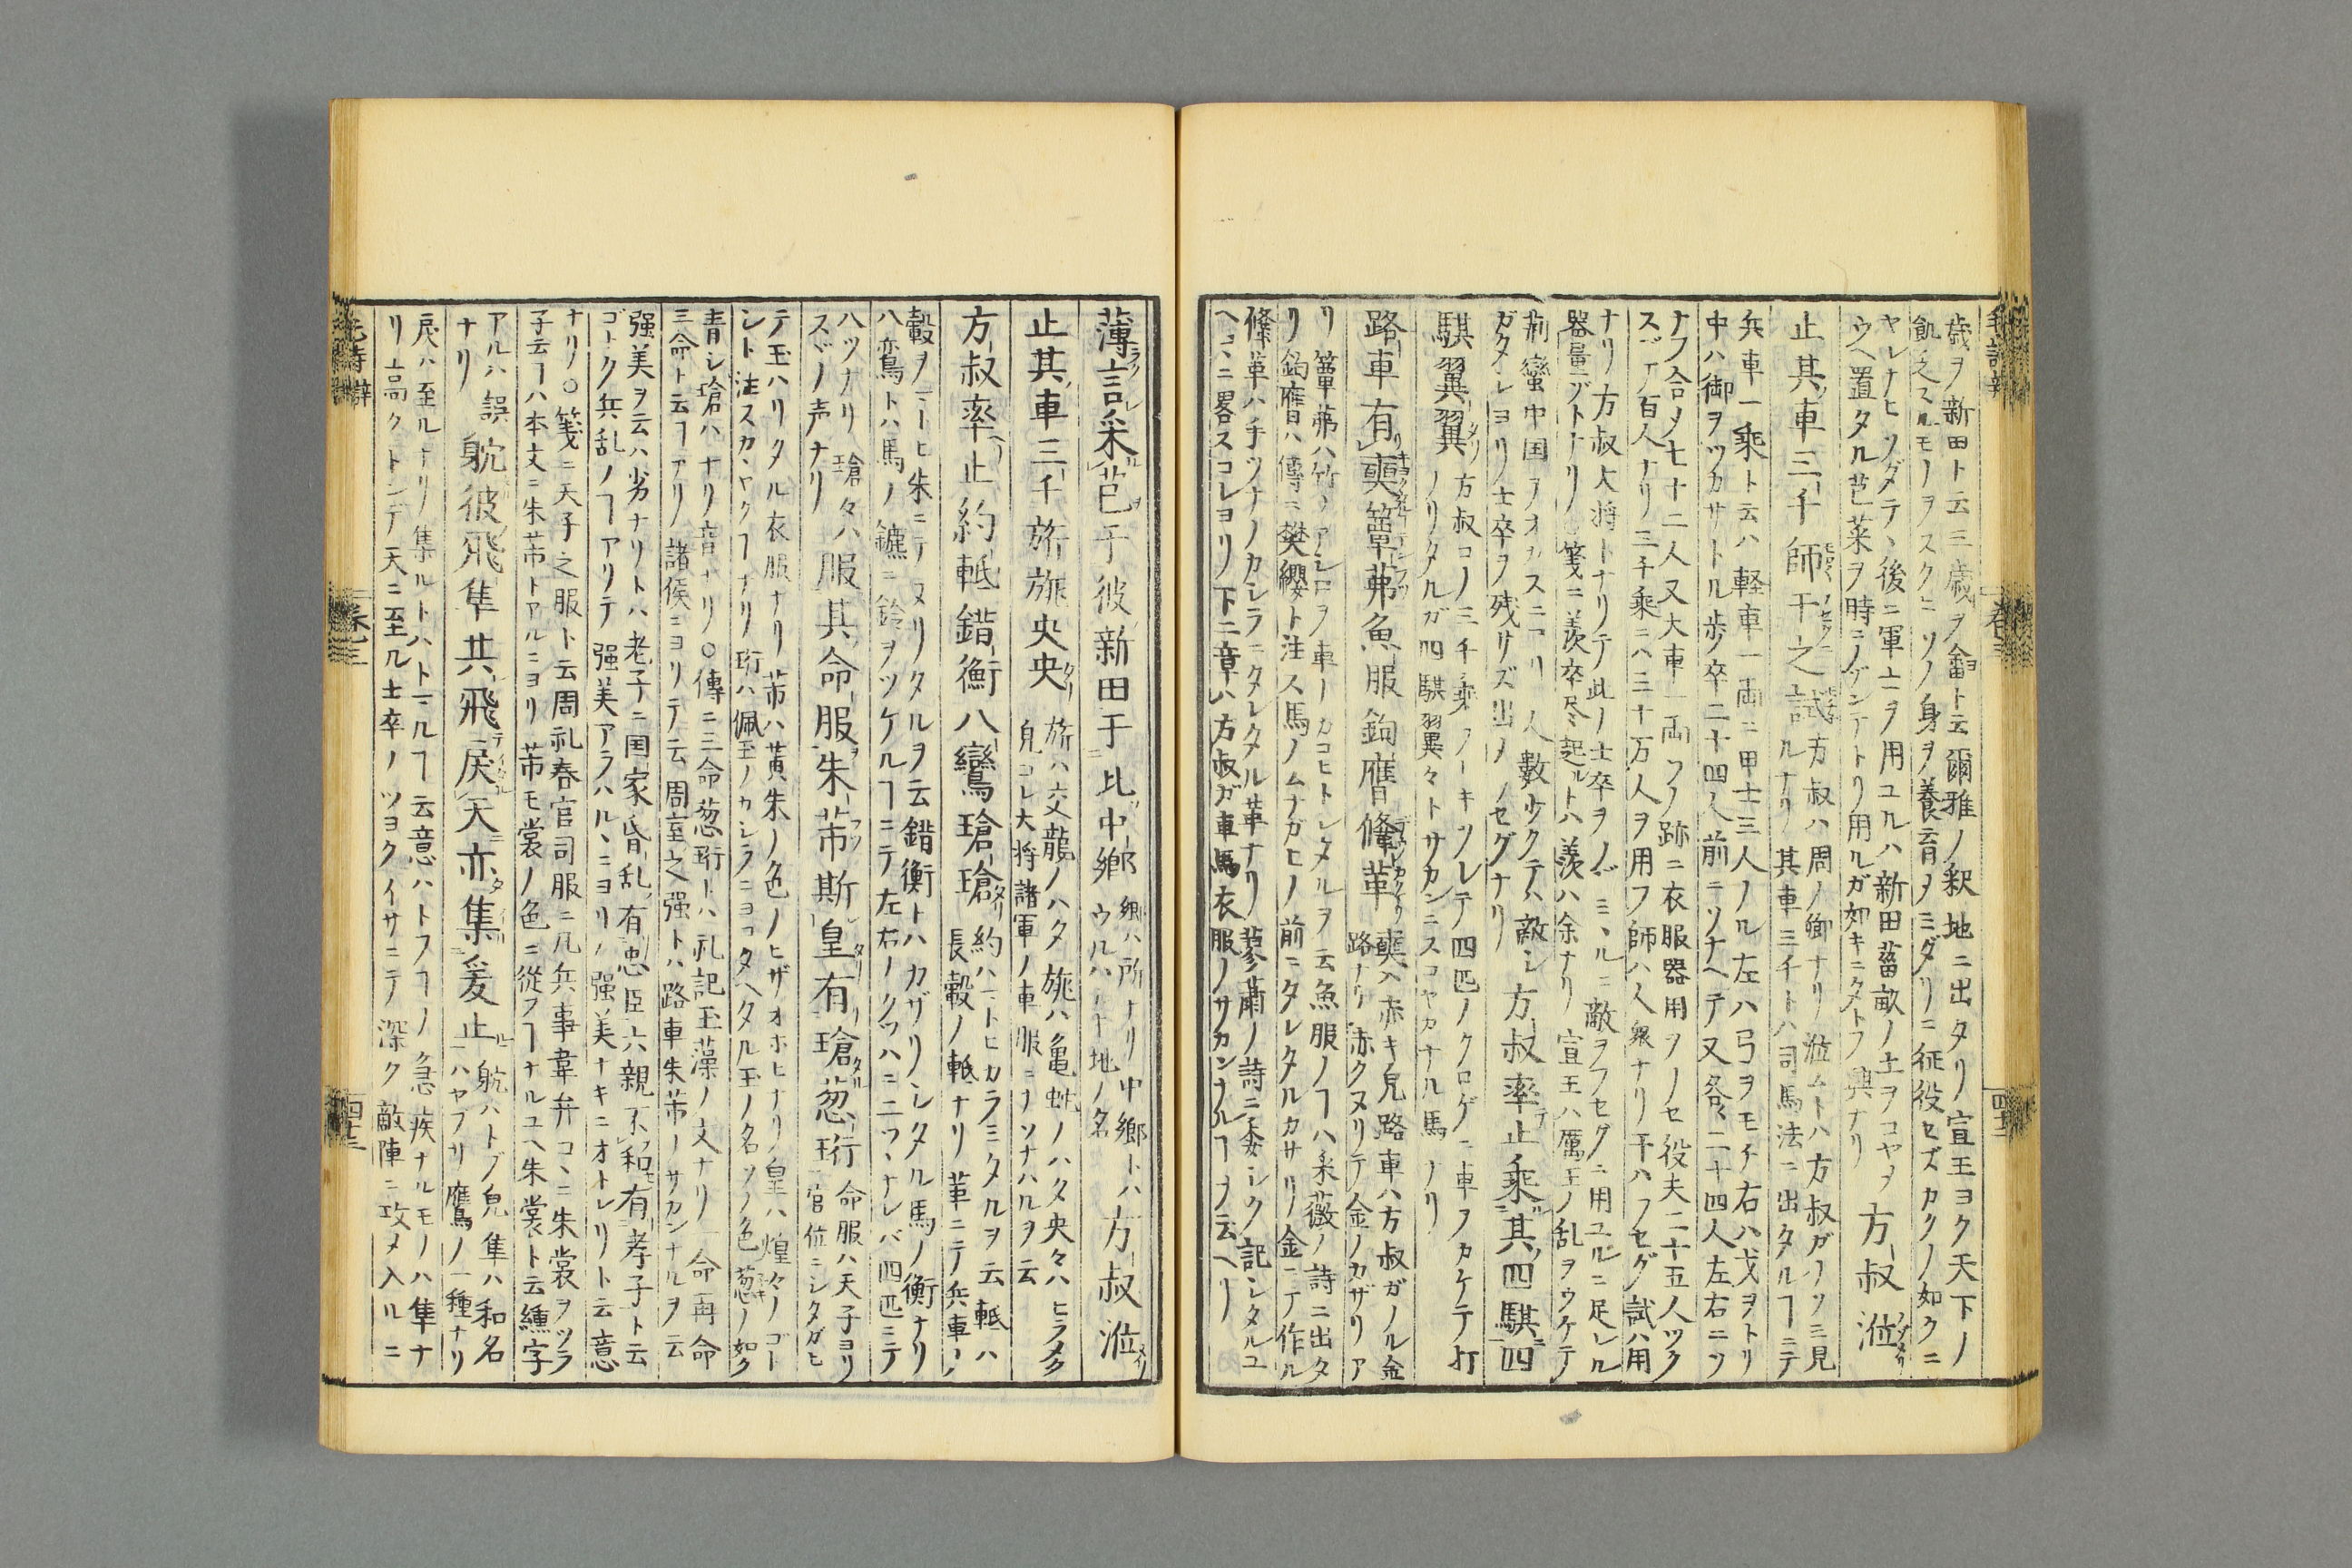 歳ヲ新田ト云三歳ヲ畬ト云爾雅ノ釈地ニ出タリ宣王ヨク天下ノ
飢乏スルモノヲスクニソノ身ヲ養育ヲミダリニ征役セズカクノ如クニ
ヤレナヒソダテヽ後ニ軍士ヲ用ユルハ新田葘畝ノ土ヲコヤヲ
ウヘ置タル芑菜ヲ時ニノゾンテトリ用ルガ如キニタトフ興ナリ
方叔涖
止其車三千師干之試
方叔ハ周ノ卿ナリ涖ムトハ方叔ガノソミ見
ルナリ其車三千トハ司馬法ニ出タルヿニテ
兵車一乘ト云ハ軽車一両ニ甲士三人ノル左ハ弓ヲモチ右ハ戈ヲトリ
中ハ御ヲツカサトル歩卒二十四人前ニソナヘテ又各二十四人左右ニツ
ナフ合ノ七十二人又大車一両ソノ跡ニ衣服器用ヲノセ役夫二十五人ツク
スヘテ百人ナリ三千乘ニハ三十万人ヲ用フ師ハ人衆ナリ干ハフセグ試ハ用
ナリ方叔大将トナリテ此ノ士卒ヲノゾミヽルニ敵ヲフセグニ用ユルニ足レル
器量ゾトナリ○箋ニ羨卒尽起ルトハ羨ハ余ナリ宣王ハ厲王ノ乱ヲウケテ
荊蠻中国ヲオカスニヨリ人數少クテハ敵シ
ガタシヨリノ士卒ヲ残サズ出メフセグナリ
方叔率止乘其四騏四
騏翼翼
方叔コノ三千乘ノ
ノリタルガ四騏翼々トサカンニスコヤカナル馬ナリ
路車有奭簟茀魚服鉤膺鞗革
奭ハ赤キ皃路車ハ方叔ガノル金
路ナリ赤クヌリテ金ノカザリア
リ簟茀ハ竹ノアシロヲ車ノカコヒトシタルヲ云魚服ノヿハ采薇ノ詩ニ出タ
リ鉤膺ハ傳ニ樊纓ト注ス馬ノムナガヒノ前ニタレタルカサリノ金ニテ作ル
鞗革ハ手ツナノカシラニタレタル革ナリ蓼蕭ノ詩ニ委シク記シタルユ
ヘコヽニ畧スコレヨリ下二章ハ方叔ガ車馬衣服ノサカンナルヿヲ云ヘリ
薄言采芑于彼新田于此中鄉
鄉ハ所ナリ中鄉トハ
方叔涖
止其車三千旂旐央央
旂ハ交龍ノハタ旐ハ亀蛇ノハタ央々ハヒラメク
皃コレ大将諸軍ノ車服ニナソナハルヲ云
方叔率止約軝錯衡八鸞瑲瑲
約ハマトヒカラミタルヲ云軝ハ
長轂ノ軝ナリ革ニテ兵車ノ
轂ヲマトヒ朱ニテヌリタルヲ云錯衡トハカザリシタル馬ノ衡ナリ
八鸞トハ馬ノ鑣ニ鈴ヲツケルヿニテ左右ノクツハニ二ツヽナレバ四匹ニテ
八ツナリ瑲々ハ
スヾノ声ナリ
服其命服朱芾斯皇有瑲葱珩
命服ハ天子ヨリ
官位ニシタガヒ
テ玉ハリタル衣服ナリ芾ハ黄朱ノ色ノヒザオホヒナリ皇ハ煌々ノゴト
シト注スカヽヤクヿナリ珩ハ佩玉ノカシラニヨコタヘタル玉ノ名ソノ色葱ノ如ク
青シ瑲ハナリ音ナリ○傳ニ三命葱珩トハ礼記玉藻ノ文ナリ一命再命
三命ト云ヿアリ諸侯ニヨリテ云周室之强トハ路車朱芾ノサカンナルヲ云
强美ヲ云ハ劣ナリトハ老子ニ国家昏乱有忠臣六親不和有孝子ト云
ゴトク兵乱ノヿアリテ强美アラハルヽニヨリ强美ナキニオトレリト云意
ナリ○箋ニ天子之服ト云周礼春官司服ニ凡兵事韋弁コヽニ朱裳ヲツラ
子云ヿハ本文ニ朱芾トアルニヨリ芾モ裳ノ色ニ從フヿナルユヘ朱裳ト云纁字
アルハ誤
ナリ
鴥彼飛隼其飛戾天亦集爰止
鴥ハトブ皃隼ハ和名
ハヤブサ鷹ノ一種ナリ
戾ハ至ルナリ集ルトハトマルヿ云意ハトスヿノ急疾ナルモノハ隼ナ
リ高クトンデ天ニ至ル士卒ノツヨクイサミテ深ク敵陣ニ攻メ入ルニ
毛詩辯
卷三
四十三